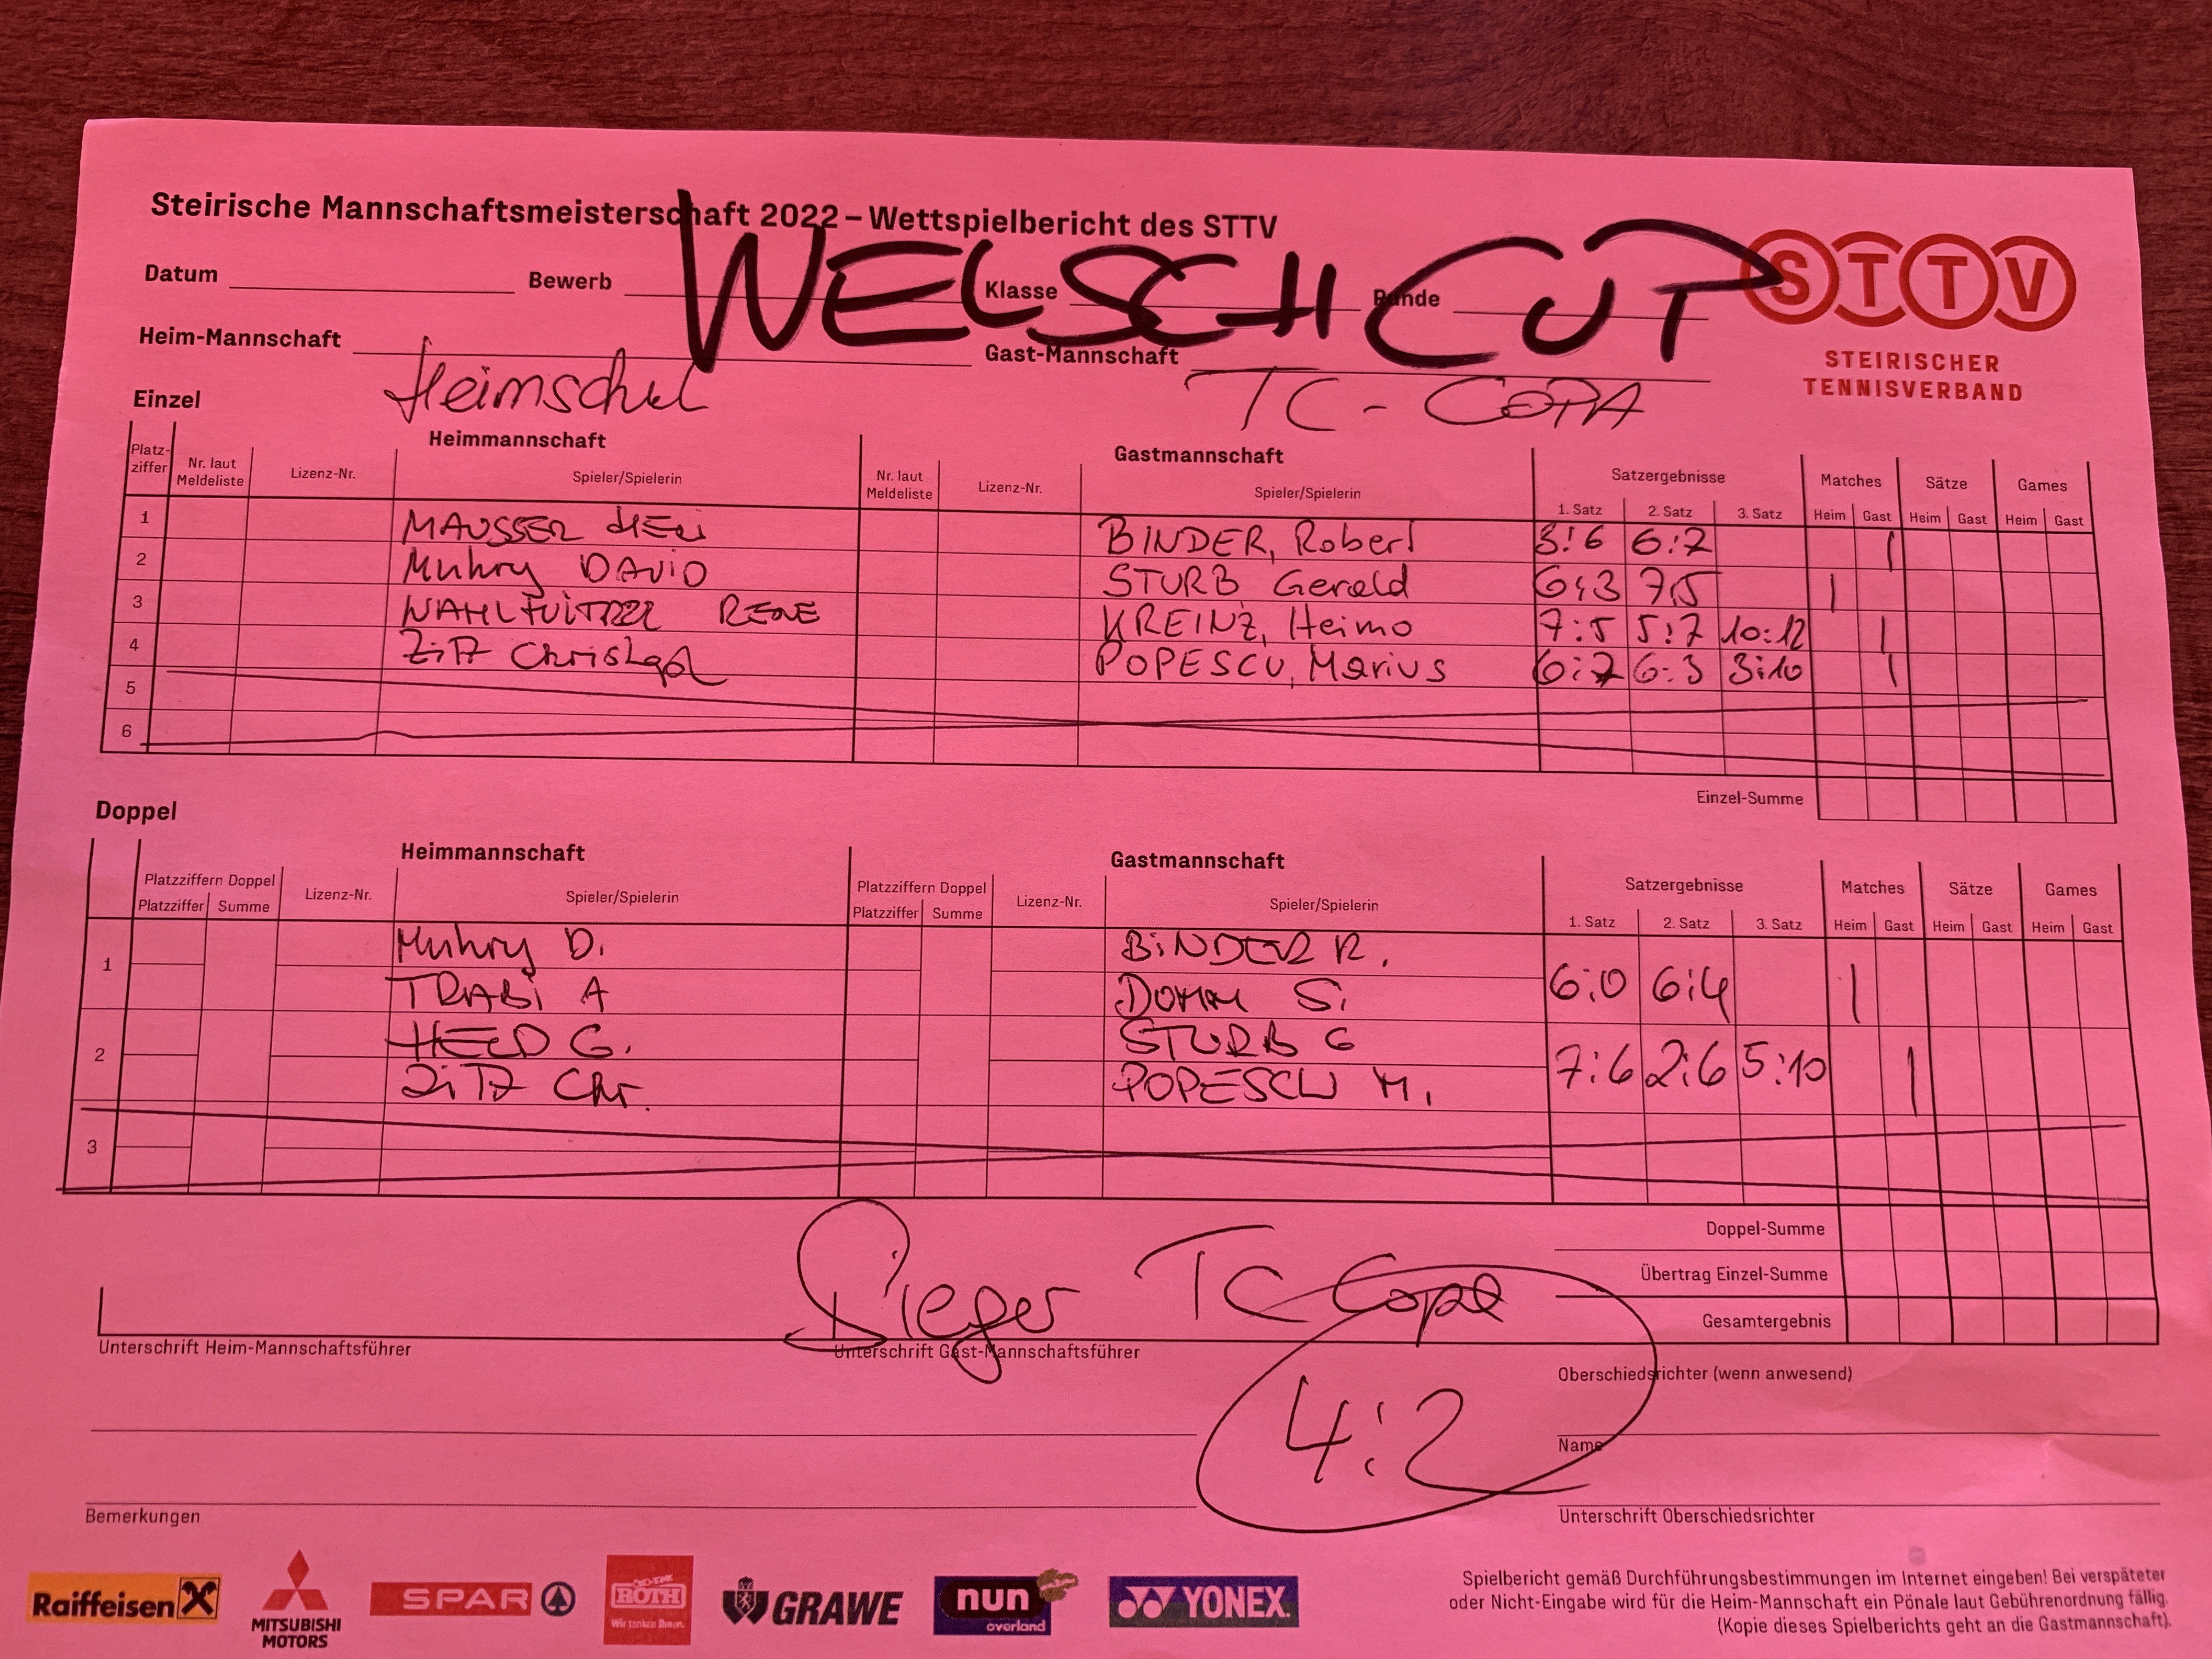 Steirische Mannschaftsmeisterschaft 2022 – Wettspielbericht des STTV
WELSCH CUP
STTV
STEIRISCHER
TENNISVERBAND
Datum Bewerb Klasse Runde
Heim-Mannschaft Gast-Mannschaft
Heimschuh TC-COPA
Einzel
Heimmannschaft Gastmannschaft
Platz-ziffer Nr. laut Meldeliste Lizenz-Nr. Spieler/Spielerin Nr. laut Meldeliste Lizenz-Nr. Spieler/Spielerin Satzergebnisse Matches Sätze Games
1. Satz 2. Satz 3. Satz Heim Gast Heim Gast Heim Gast
1 MAUSSER HELI BINDER, Robert 3:6 6:7 |
2 Muhry DAVID STURB Gerald 6:3 7:5 |
3 RENE KREINZ, Heimo 7:5 5:7 10:12 |
4 ZiTZ Christoph POPESCU, Marius 6:7 6:3 3:10 |
5
6
Einzel-Summe
Doppel
Heimmannschaft Gastmannschaft
Platzziffern Doppel Lizenz-Nr. Spieler/Spielerin Platzziffern Doppel Lizenz-Nr. Spieler/Spielerin Satzergebnisse Matches Sätze Games
Platzziffer Summe Platzziffer Summe 1. Satz 2. Satz 3. Satz Heim Gast Heim Gast Heim Gast
Muhry D. BiNDER R.
1 6:0 6:4 |
TRABi A S.
HELD G. STURB G
2 7:6 2:6 5:10 |
ZiTZ Chr. POPESCU M.
3
Doppel-Summe
Übertrag Einzel-Summe
Gesamtergebnis
Sieger TC Copa
4:2
Unterschrift Heim-Mannschaftsführer Unterschrift Gast-Mannschaftsführer
Oberschiedsrichter (wenn anwesend)
Name
Bemerkungen Unterschrift Oberschiedsrichter
Raiffeisen
MITSUBISHI
MOTORS
SPAR
ROTH
Wir tanken Ihnen.
GRAWE
nun
overland
YONEX
Spielbericht gemäß Durchführungsbestimmungen im Internet eingeben! Bei verspäteter
oder Nicht-Eingabe wird für die Heim-Mannschaft ein Pönale laut Gebührenordnung fällig.
(Kopie dieses Spielberichts geht an die Gastmannschaft).